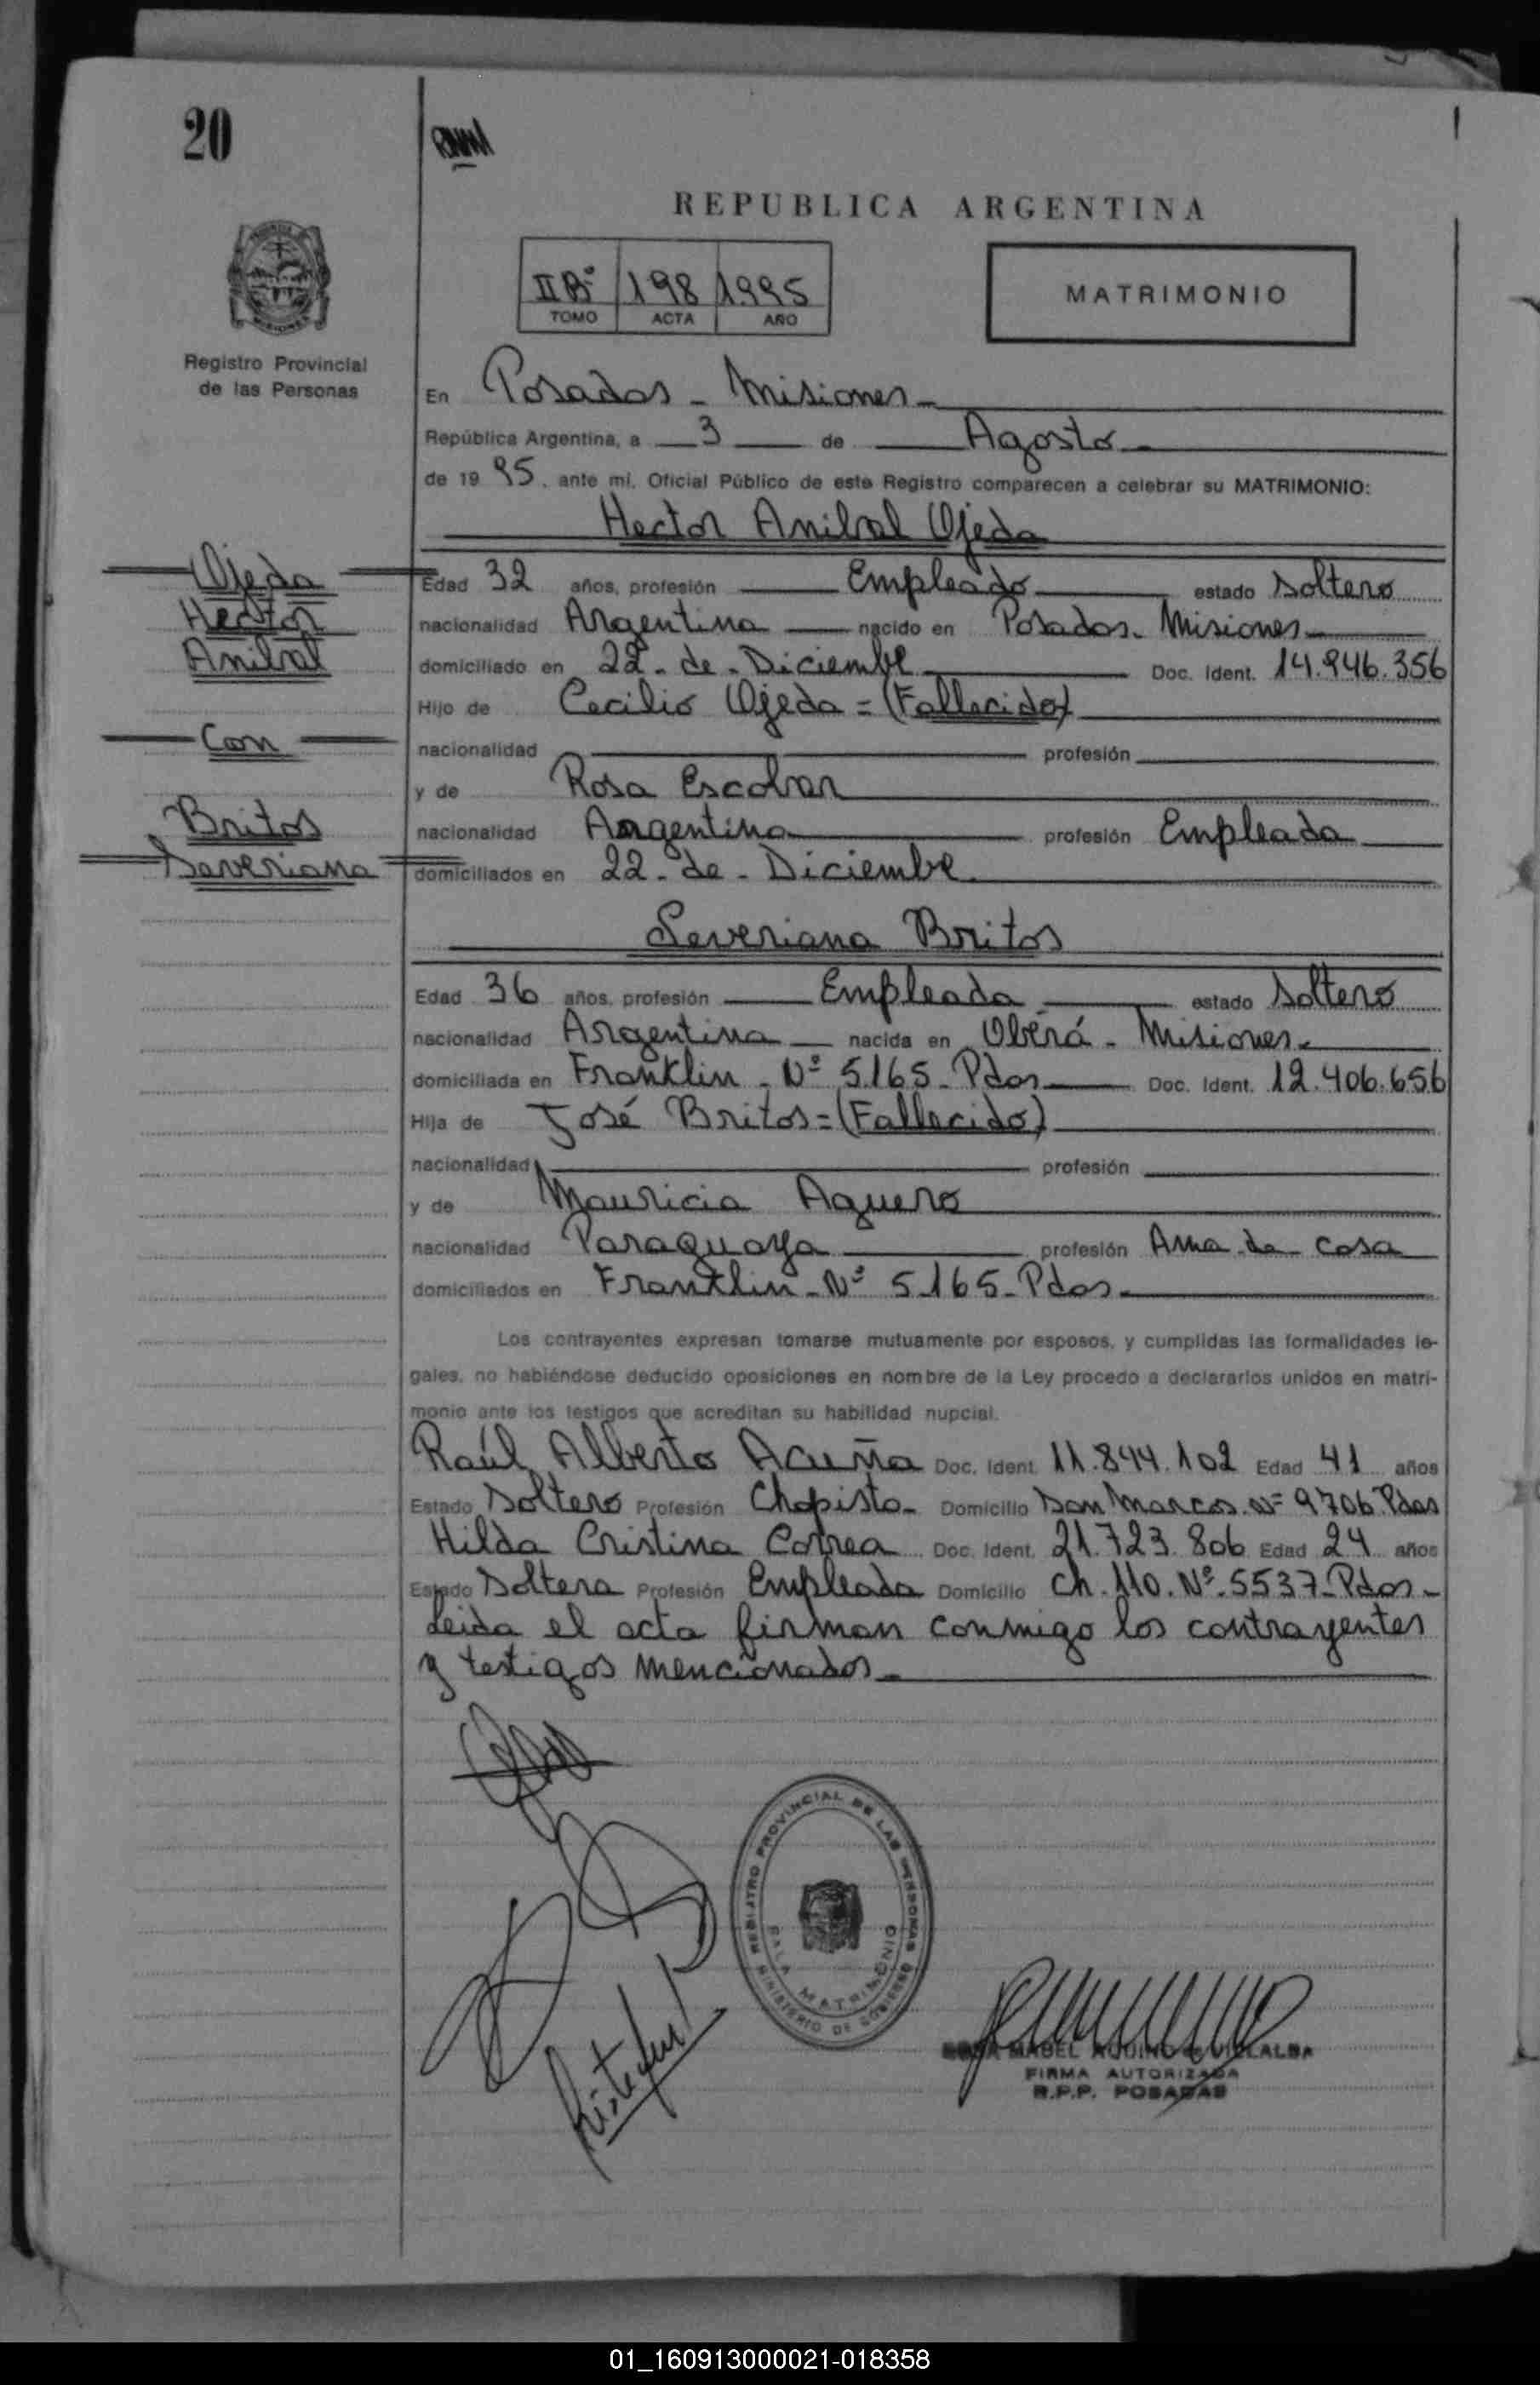 20
REPUBLICA ARGENTINA
IIBº 198 1995
TOMO ACTA AÑO
MATRIMONIO
Registro Provincial
de las Personas
En Posadas - Misiones -
República Argentina, a 3 de Agosto -
de 19 95, ante mí, Oficial Público de este Registro comparecen a celebrar su MATRIMONIO:
Hector Anibal Ojeda
Ojeda
Hector
Anibal
Con
Britos
Severiana
Edad 32 años, profesión Empleado estado Soltero
nacionalidad Argentina nacido en Posadas - Misiones -
domiciliado en 22 - de - Diciembre Doc. Ident. 14.946.356
Hijo de Cecilio Ojeda = (Fallecido)
nacionalidad profesión
y de Rosa Escobar
nacionalidad Argentina profesión Empleada
domiciliados en 22 - de - Diciembre
Severiana Britos
Edad 36 años, profesión Empleada estado Soltero
nacionalidad Argentina nacida en Oberá - Misiones -
domiciliada en Franklin - Nº 5165 - Pdas Doc. Ident. 12.406.656
Hija de José Britos = (Fallecido)
nacionalidad profesión
y de Mauricia Aguero
nacionalidad Paraguaya profesión Ama de casa
domiciliados en Franklin - Nº 5165 - Pdas -
Los contrayentes expresan tomarse mutuamente por esposos, y cumplidas las formalidades le-
gales, no habiéndose deducido oposiciones en nombre de la Ley procedo a declararlos unidos en matri-
monio ante los testigos que acreditan su habilidad nupcial.
Raúl Alberto Acuña Doc. Ident. 11.844.102 Edad 41 años
Estado Soltero Profesión Chapista - Domicilio San Marcos Nº 9706 Pdas
Hilda Cristina Correa Doc. Ident. 21.723.806 Edad 24 años
Estado Soltera Profesión Empleada Domicilio Ch. 110. Nº. 5537 - Pdas -
Leida el acta firman conmigo los contrayentes
y testigos mencionados -
REGISTRO PROVINCIAL DE LAS PERSONAS
SALA MATRIMONIO
MINISTERIO DE GOBIERNO
MABEL AQUINO de VILLALBA
FIRMA AUTORIZADA
R.P.P. POSADAS
01_160913000021-018358